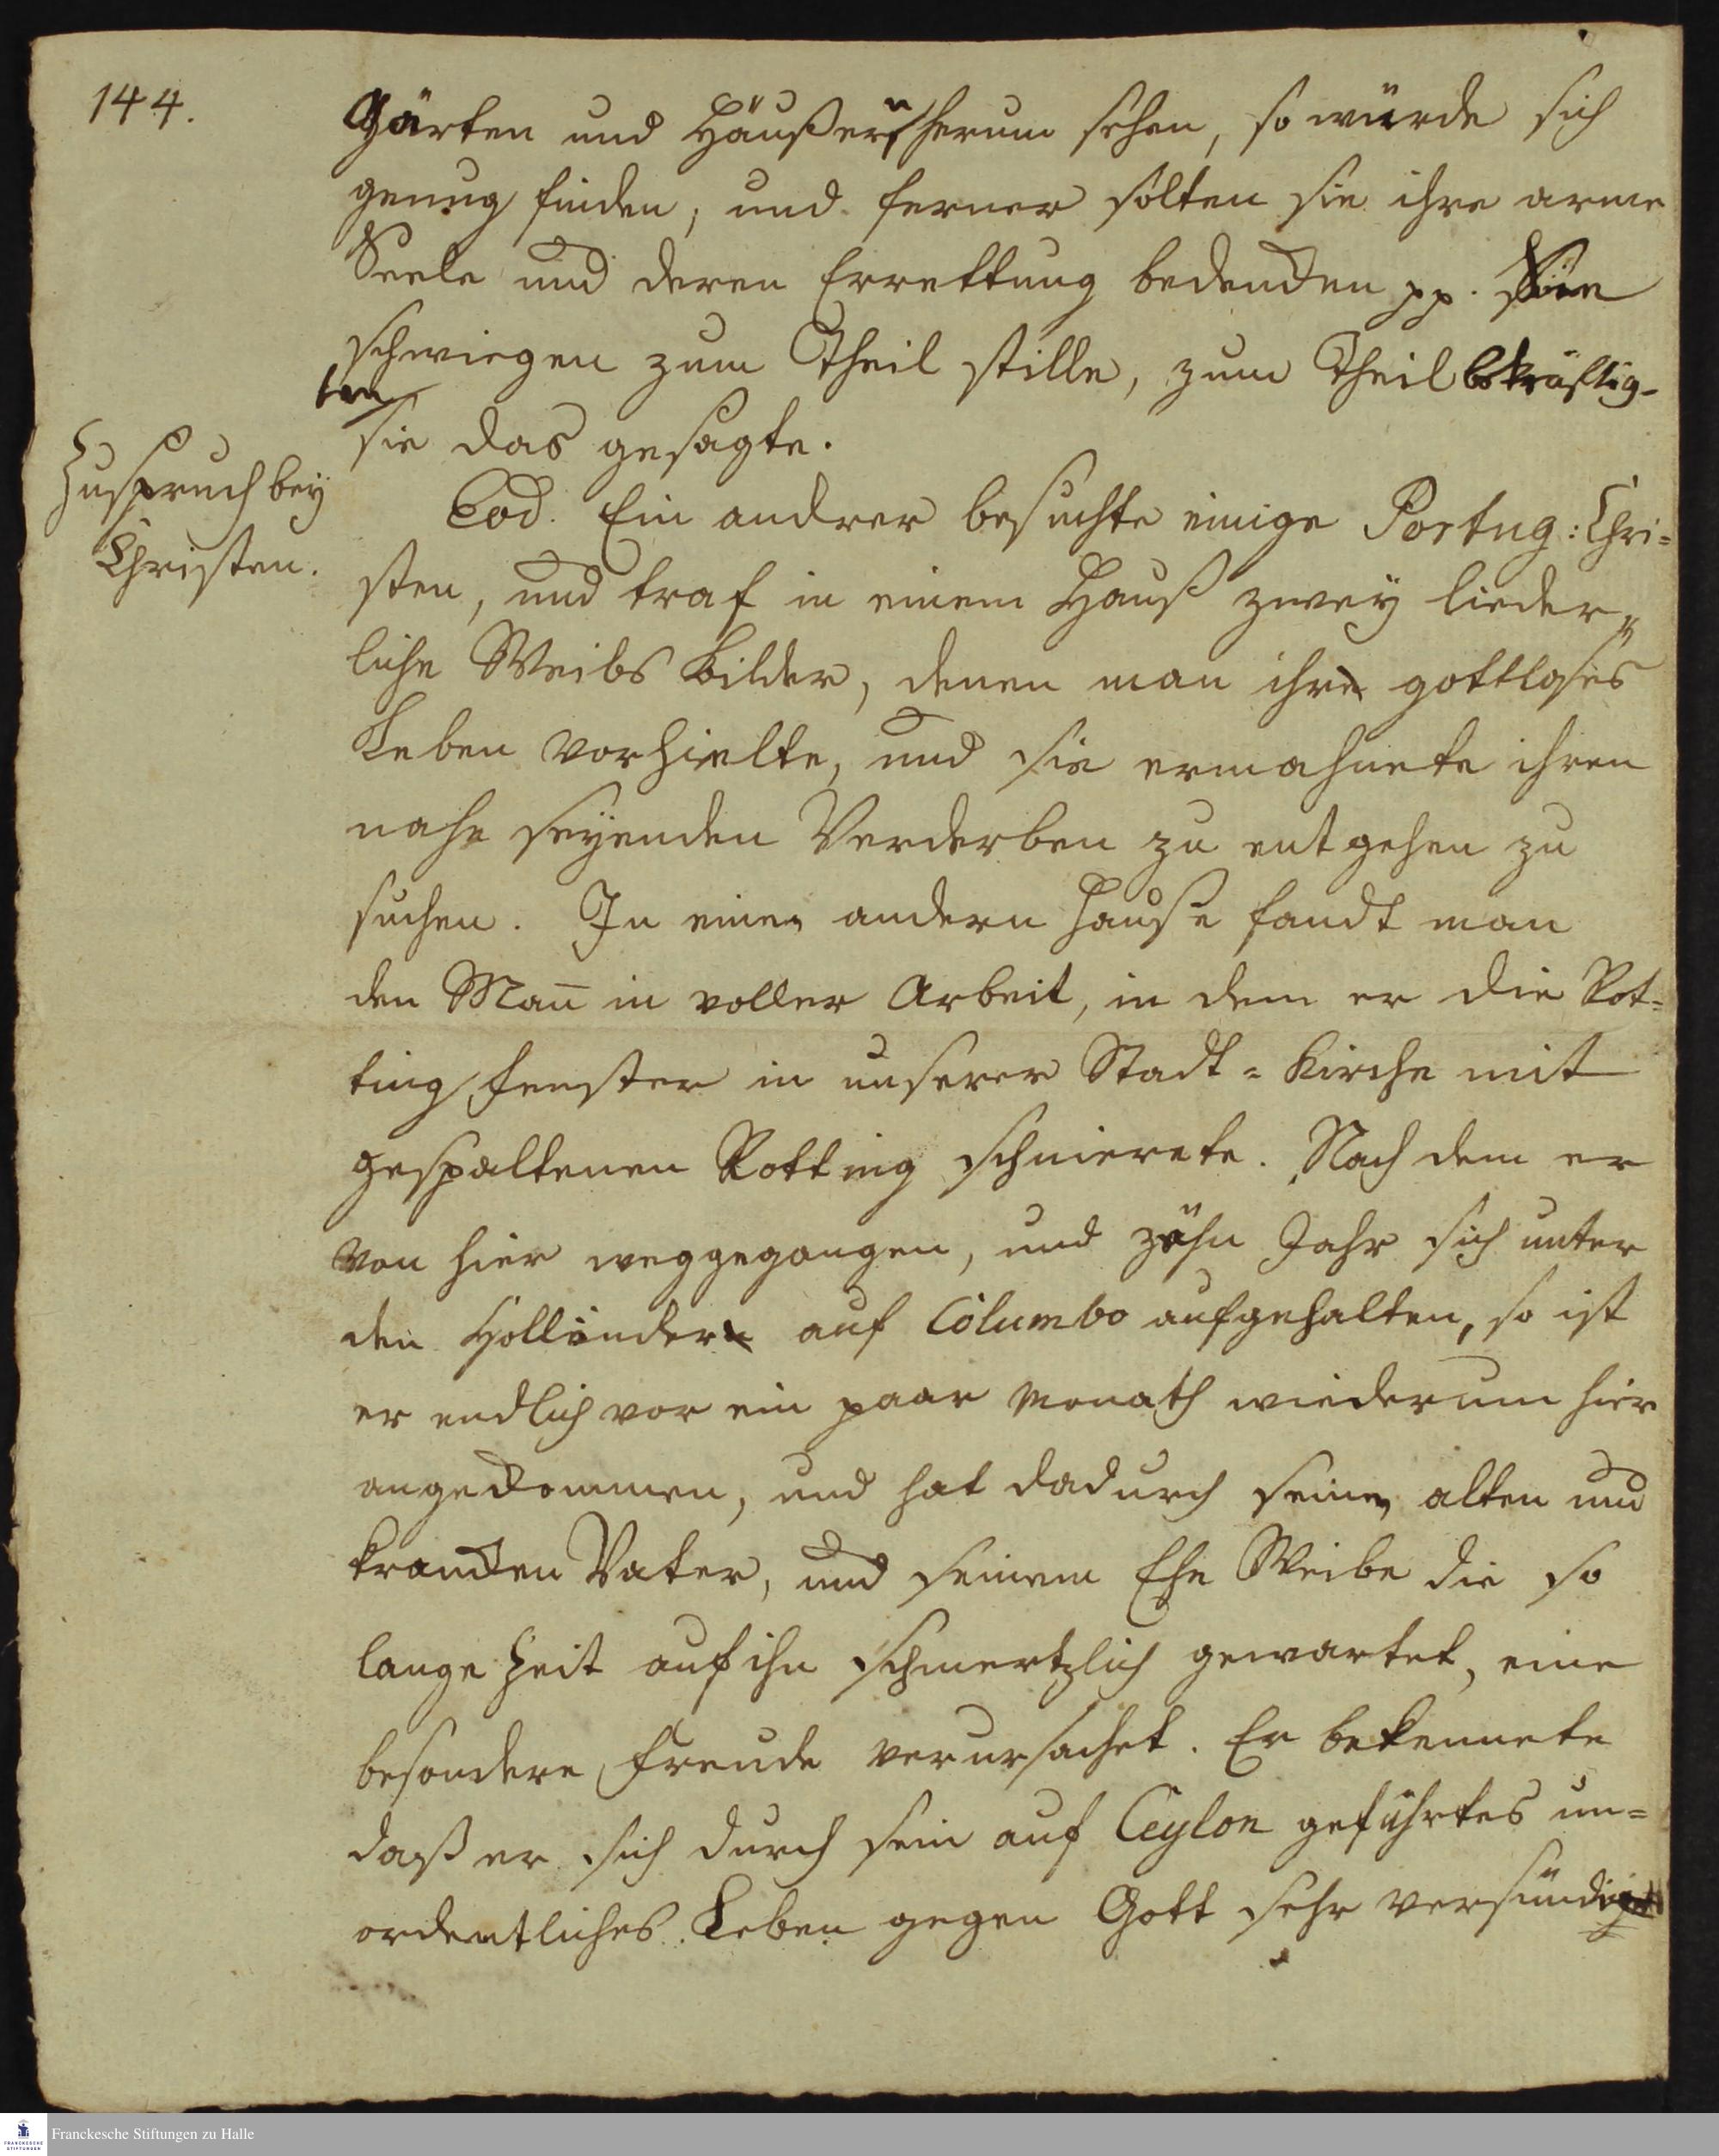 144.
Gärten und Häußern herum sehen, so würde sich
genug finden, und ferner solten sie ihre arme
Seele und deren Errettung bedencken pp. Sie
schwiegen zum Theil stille, zum Theil bekräftig-
ten
sie das gesagte.
Zuspruch bey
Christen.
Eod. Ein andrer besuchte einige Portug: Chri=
sten, und traf in einem Hauß zwey lieder„
liche Weibs Bilder, denen man ihr gottloses
Leben vorhielte, und sie ermahnete ihren
nahe seyenden Verderben zu entgehen zu
suchen. In einem andern Hause fandt man
den Man̄ in voller Arbeit, in dem er die Rot=
ting Fenster in unserer Stadt=Kirche mit
gespaltenen Rotting schnierete. Nach dem er
von hier weggegangen, und zöhn Jahr sich unter
den Holländern auf Columbo aufgehalten, so ist
er endlich vor ein paar Monath wiederum hier
angekommen, und hat dadurch seinem alten und
krancken Vater, und seinem Ehe Weibe die so
lange Zeit auf ihn schmertzlich gewartet, eine
besondere Freude verursachet. Er bekennete
daß er sich durch sein auf Ceylon geführtes un=
ordentliches Leben gegen Gott sehr versündiget
Franckesche Stiftungen zu Halle